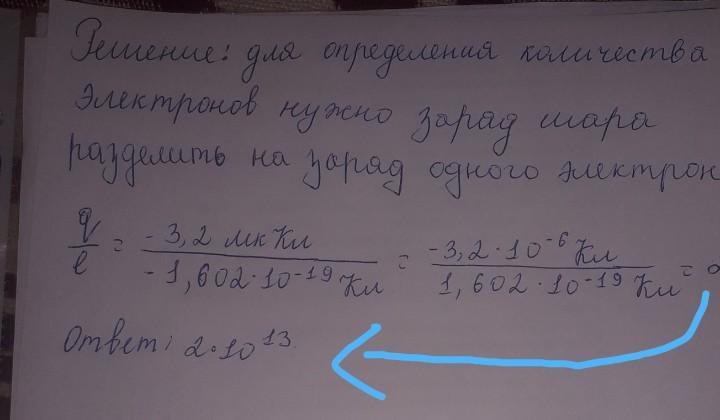 Решение: для определения количества
электронов нужно заряд шара
разделить на заряд одного электрон
q/e = - 3,2 мкКл / - 1,602·10⁻¹⁹ Кл = -3,2·10⁻⁶ Кл / 1,602·10⁻¹⁹ Кл =
Ответ: 2·10¹³